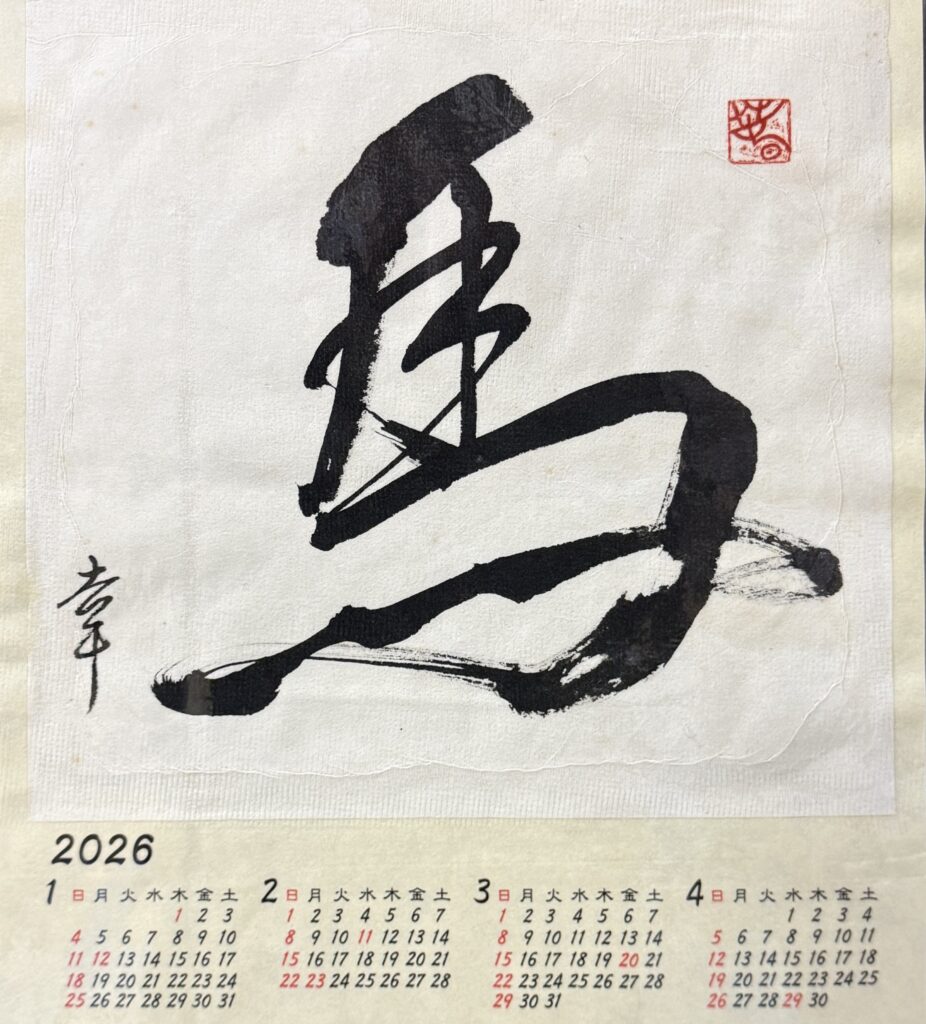 馬
幸
2026
1
日 月 火 水 木 金 土
1 2 3
4 5 6 7 8 9 10
11 12 13 14 15 16 17
18 19 20 21 22 23 24
25 26 27 28 29 30 31
2
日 月 火 水 木 金 土
1 2 3 4 5 6 7
8 9 10 11 12 13 14
15 16 17 18 19 20 21
22 23 24 25 26 27 28
3
日 月 火 水 木 金 土
1 2 3 4 5 6 7
8 9 10 11 12 13 14
15 16 17 18 19 20 21
22 23 24 25 26 27 28
29 30 31
4
日 月 火 水 木 金 土
1 2 3 4
5 6 7 8 9 10 11
12 13 14 15 16 17 18
19 20 21 22 23 24 25
26 27 28 29 30